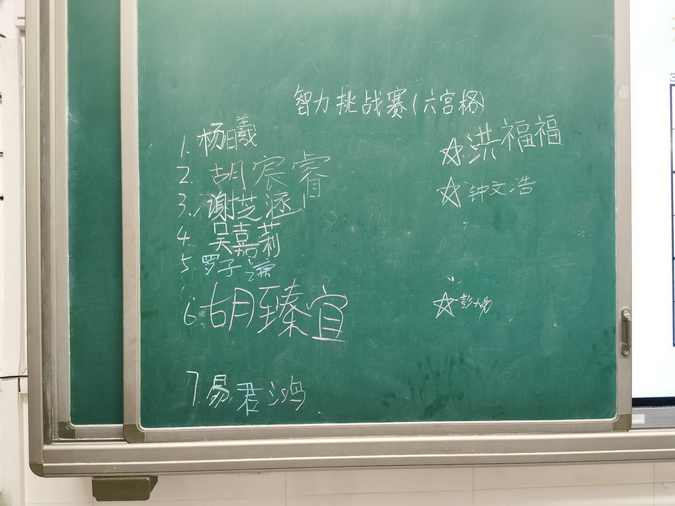 智力挑战赛(六宫格)
1. 杨曦
2. 胡宸睿
3. 谢芝涵
4. 吴嘉莉
5. 罗子溁
6. 胡臻宜
7. 易君鸿
☆洪福福
☆钟文浩
☆彭